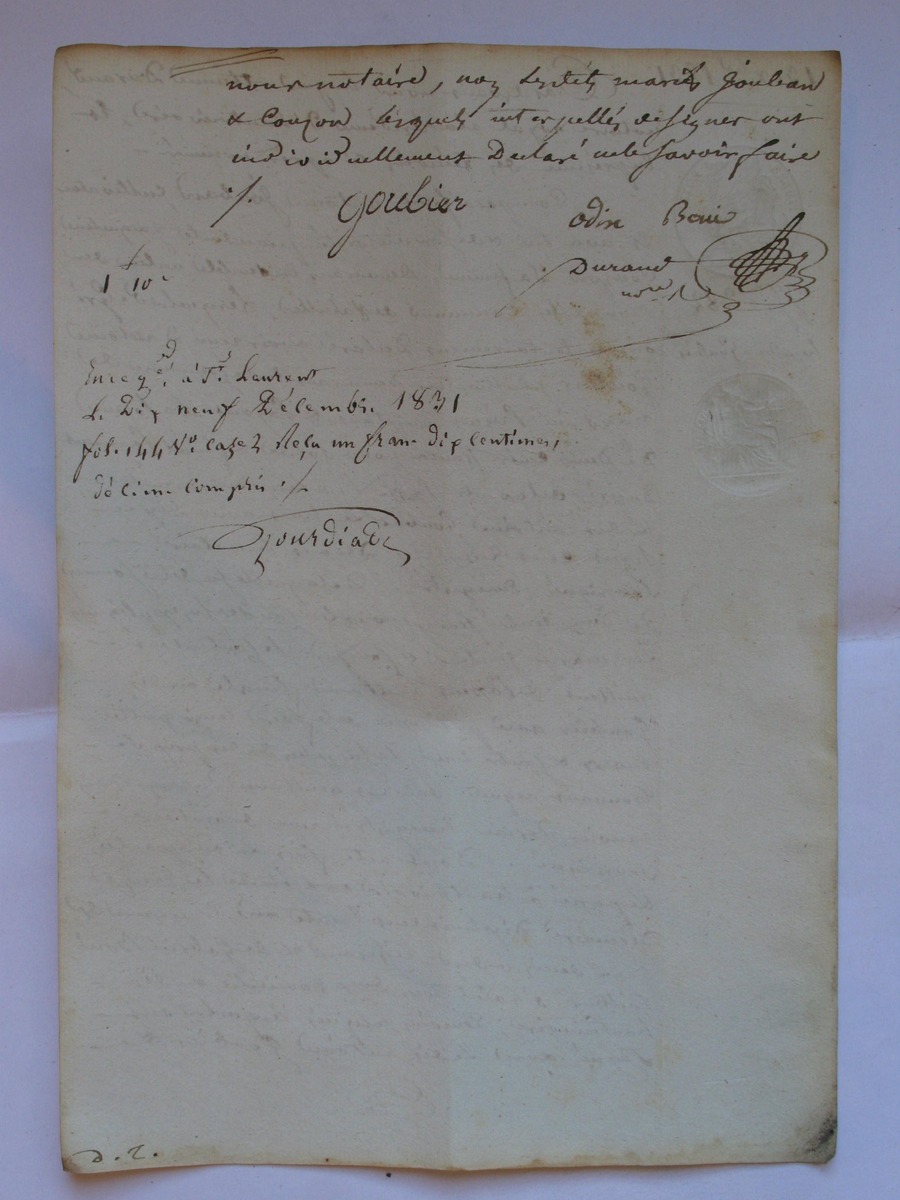 nous notaire, non lesdits mariés Jouban
& Couzon lesquels interpellés de signer ont
individuellement Declaré ne le Savoir faire
goubier
odin Beni
Durand
nore
1 f 10 c
Enregé. à St. Laurent
le Dix neuf Décembre 1831
fol. 144 Vo. case 2 Reçu un franc dix centimes,
décime compris
Gourdiat
D. T.